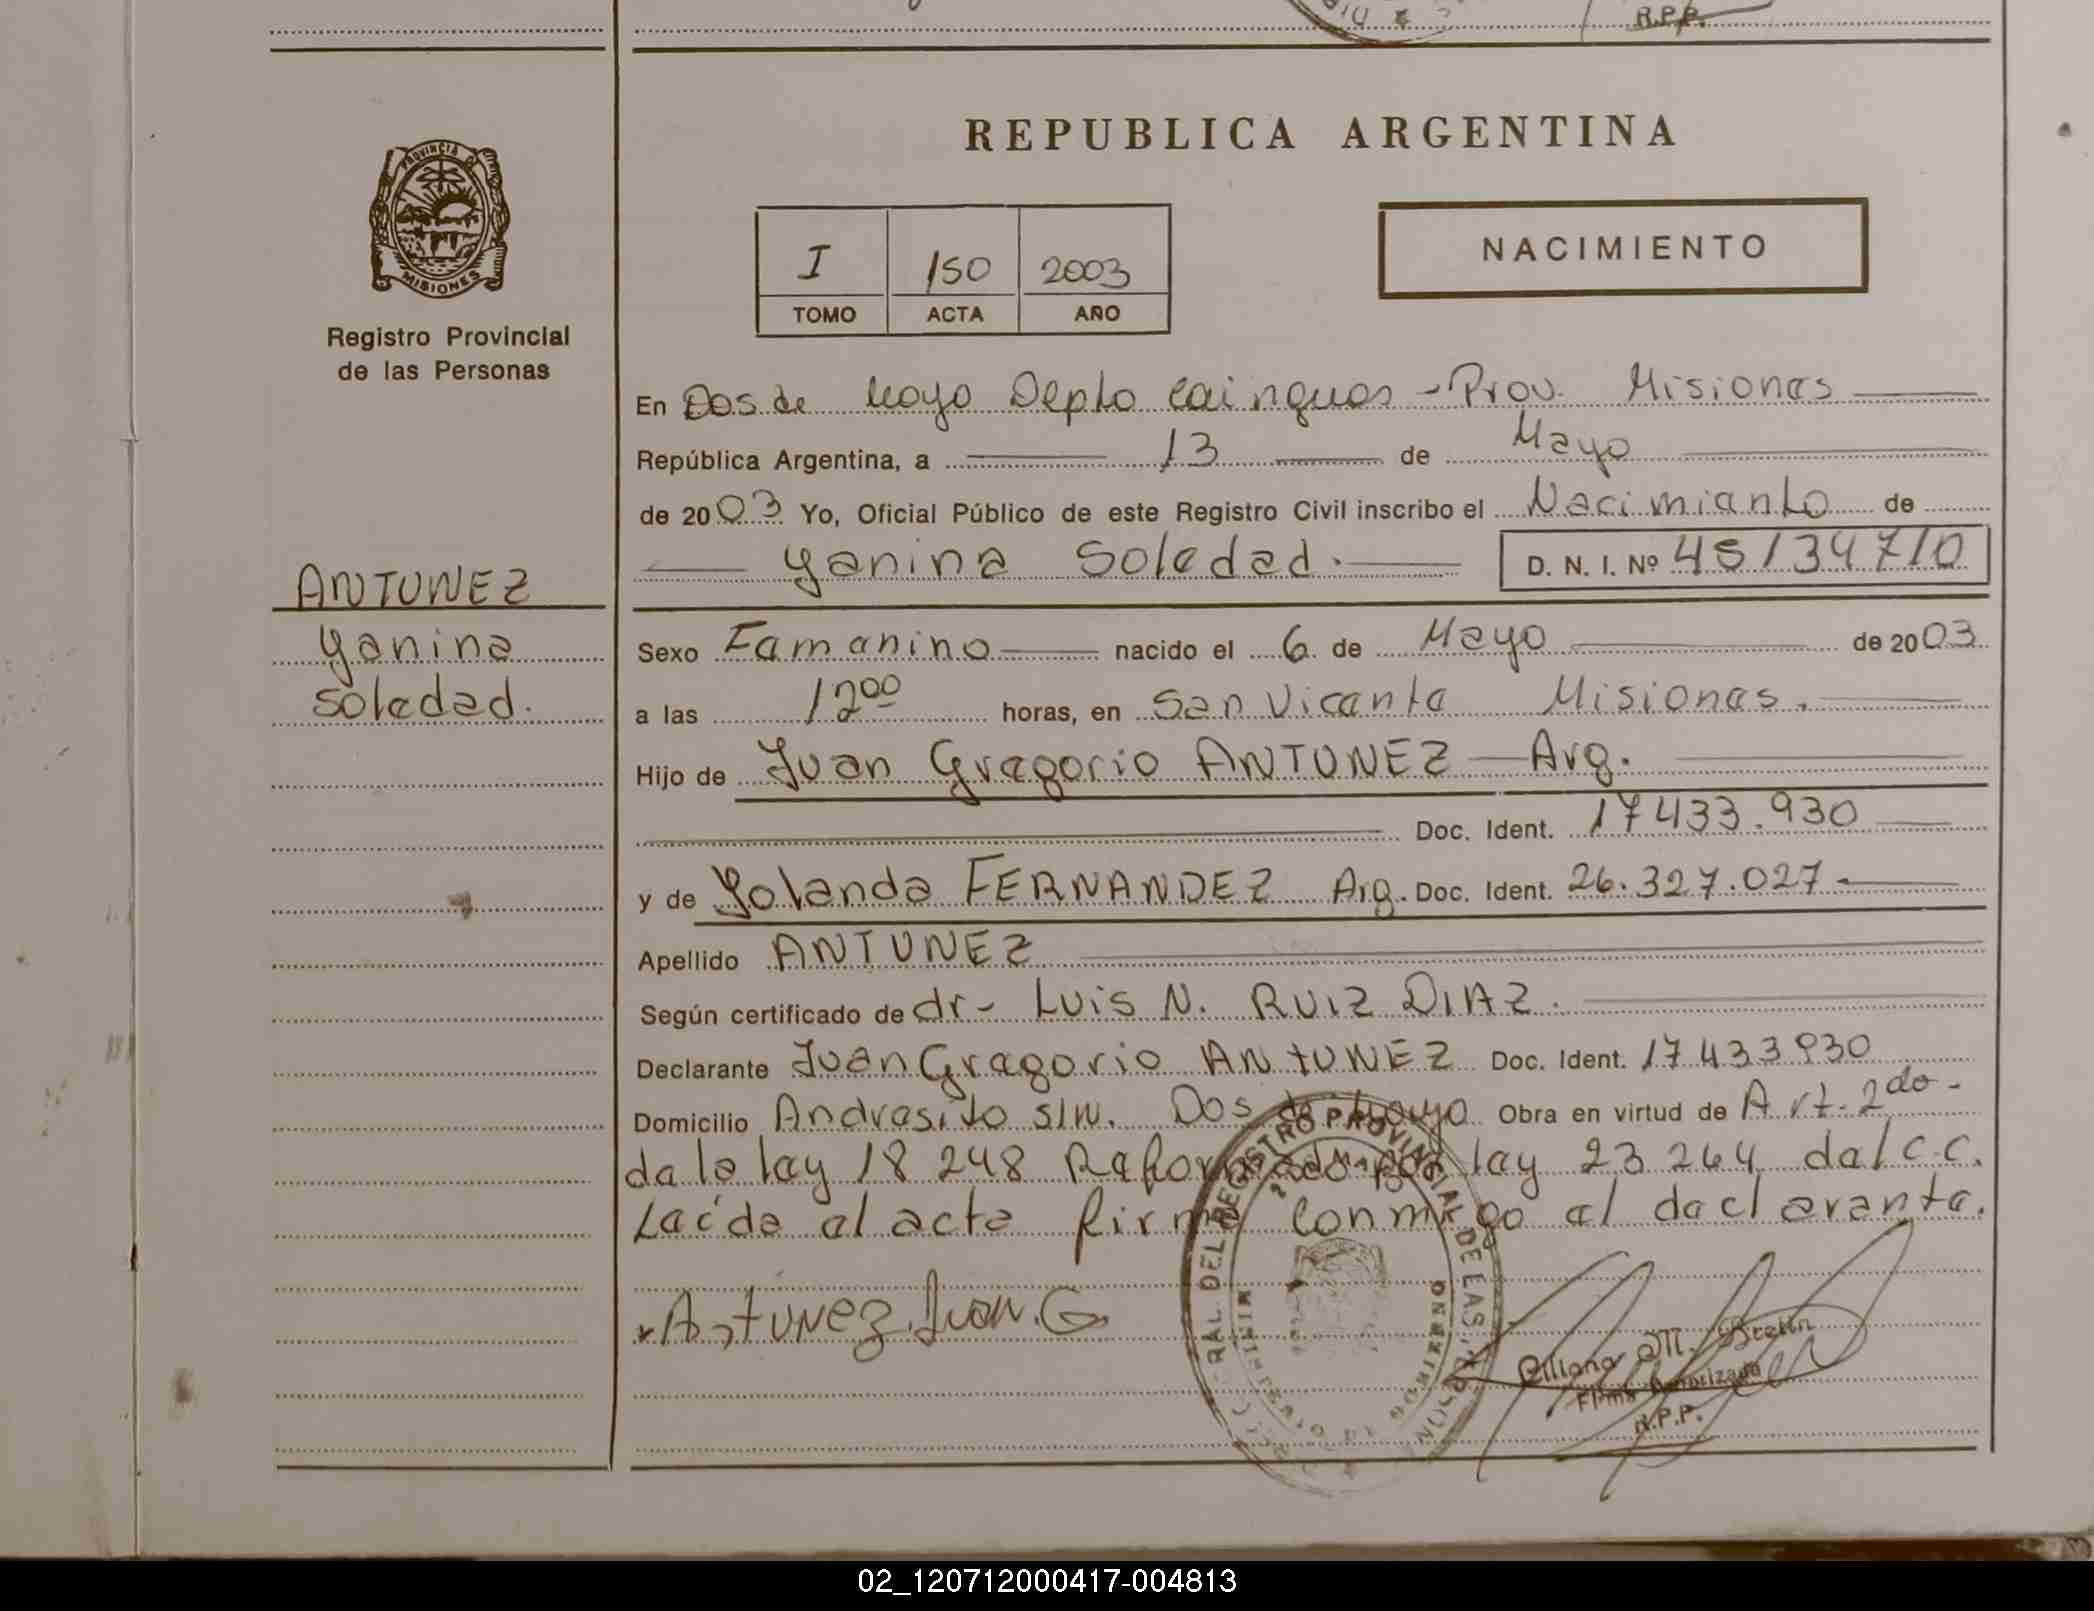 R.P.P.
REPUBLICA ARGENTINA
PROVINCIA D
MISIONES
Registro Provincial
de las Personas
I 150 2003
TOMO ACTA AÑO
NACIMIENTO
En Dos de Mayo Depto Cainguas - Prov. Misiones
República Argentina, a 13 de Mayo
de 2003 Yo, Oficial Público de este Registro Civil inscribo el Nacimiento de
Yanina Soledad. D. N. I. Nº 45134710
ANTUNEZ
Yanina
Soledad.
Sexo Femenino nacido el 6 de Mayo de 2003
a las 12 00 horas, en San Vicente Misiones.
Hijo de Juan Gregorio ANTUNEZ - Arg.
Doc. Ident. 17433.930
y de Yolanda FERNANDEZ Arg. Doc. Ident. 26.327.027
Apellido ANTUNEZ
Según certificado de dr- Luis N. RUIZ DIAZ.
Declarante Juan Gregorio ANTUNEZ Doc. Ident. 17433930
Domicilio Andresito S/N. Dos de Mayo Obra en virtud de Art. 2do-
de la ley 18248 Reformado por ley 23264 del C.C.
Leída el acta firma conmigo el declarante.
Antunez. Juan. G
REGISTRO PROVINCIAL DE LAS
Liliana M.
Firma Autorizada
R.P.P.
02_120712000417-004813